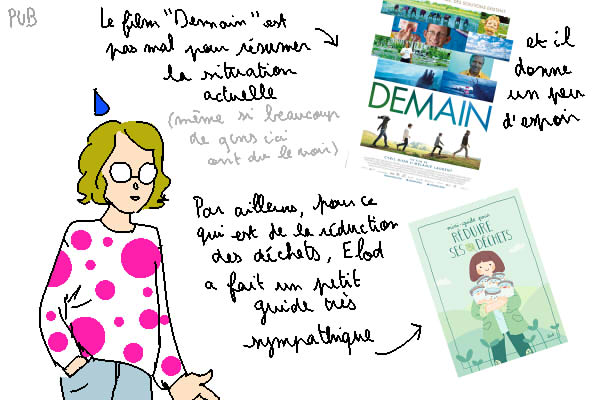 PUB
Le film "Demain" est
pas mal pour résumer
la situation
actuelle
(même si beaucoup
de gens ici
ont du le voir)
DES SOLUTIONS EXISTENT
DEMAIN
UN FILM DE
CYRIL DION & MÉLANIE LAURENT
et il
donne
un peu
d'espoir
Par ailleurs, pour ce
qui est de la réduction
des déchets, Elod
a fait un petit
guide très
sympathique
mini-guide pour
RÉDUIRE
SES DÉCHETS